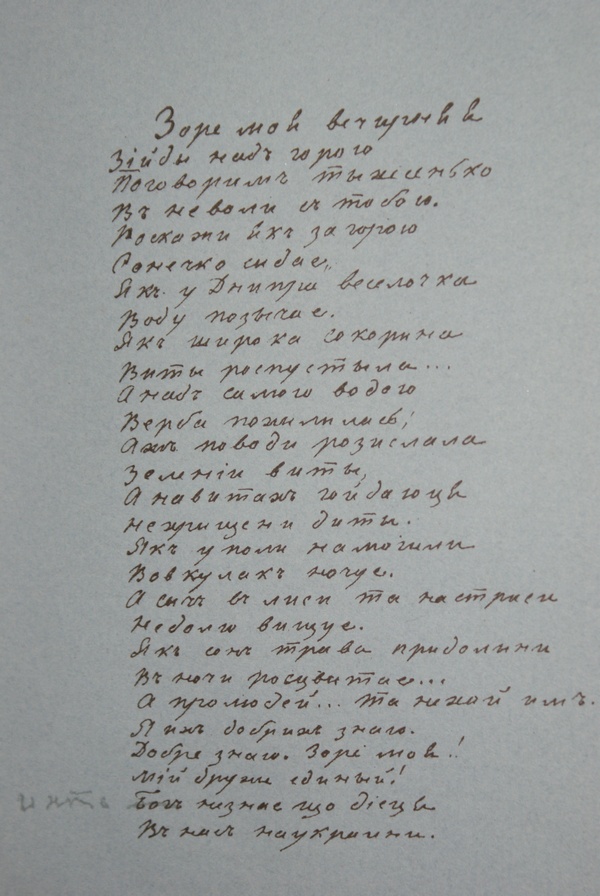 Зоре моя вечирняя
Зійды надъ горою
Поговоримъ тыхсенько
Въ неволи съ тобою.
Роскажи якъ за горою
Сонечко сидае,
Якъ у Днипра веселочка
Воду позычае.
Якъ широка сокорина
Виты роспустыла...
А надъ самою водою
Верба похилилась;
Ажъ поводи розислала
Зелении виты,
А на витахъ гойдаюця
нехрищени диты.
Якъ у поли на могили
Вовкулакъ ночуе.
А сычъ въ лиси та на стриси
Недолю вищуе.
Якъ сонъ трава при долини
Въ ночи росцвитае...
А про людей... та нехай имъ.
Я ихъ добрихъ знаю.
Добре знаю. Зоре моя!
мій друже единый!
Богъ незнае що діецця
Въ насъ на украини.